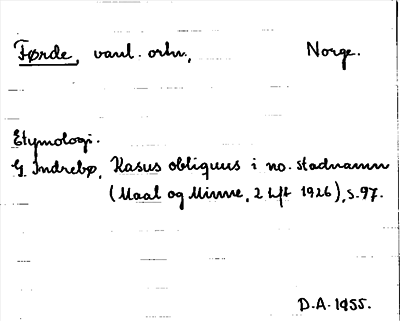 Førde, vanl. ortn., Norge.
Etymologi.
G. Indrebø, Kasus obliquus i no. stadnamn
(Maal og Minne, 2 hft 1926), s. 97.
D.A. 1955.